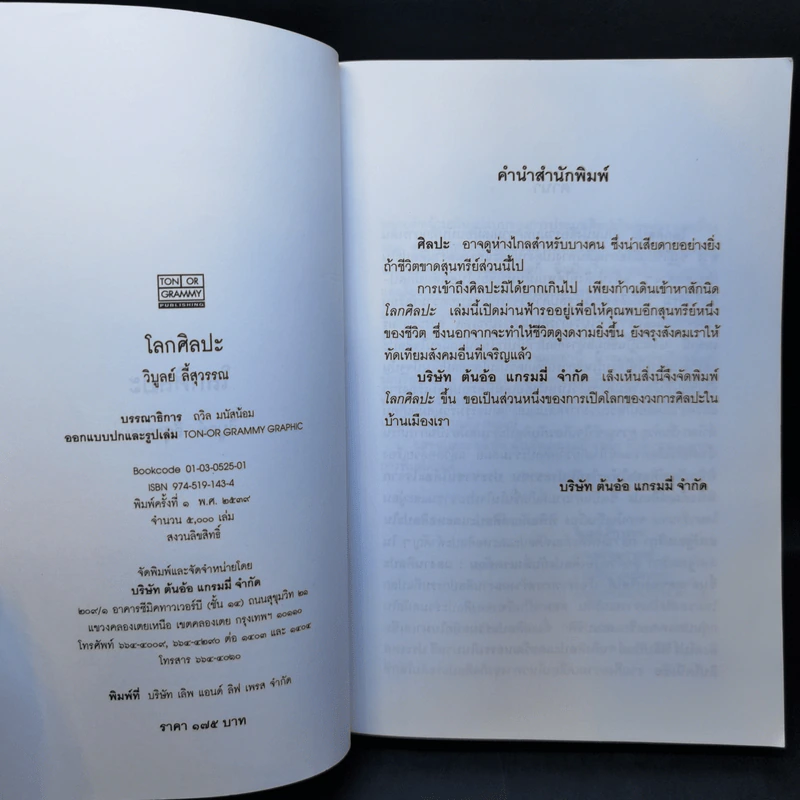 TON OR
GRAMMY
PUBLISHING
โลกศิลปะ
วิบูลย์ ลี้สุวรรณ
บรรณาธิการ ถวิล มนัสน้อม
ออกแบบปกและรูปเล่ม TON-OR GRAMMY GRAPHIC
Bookcode 01-03-0525-01
ISBN 974-519-143-4
พิมพ์ครั้งที่ ๑ พ.ศ. ๒๕๓๙
จำนวน ๕,๐๐๐ เล่ม
สงวนลิขสิทธิ์
จัดพิมพ์และจัดจำหน่ายโดย
บริษัท ต้นอ้อ แกรมมี่ จำกัด
๒๐๙/๑ อาคารซีมิคทาวเวอร์บี (ชั้น ๑๔) ถนนสุขุมวิท ๒๑
แขวงคลองเตยเหนือ เขตคลองเตย กรุงเทพฯ ๑๐๑๑๐
โทรศัพท์ ๖๖๔-๔๐๐๙, ๖๖๔-๔๒๙๐ ต่อ ๑๔๐๓ และ ๑๔๐๔
โทรสาร ๖๖๔-๔๐๑๐
พิมพ์ที่ บริษัท เลิฟ แอนด์ ลิฟ เพรส จำกัด
ราคา ๑๗๕ บาท
คำนำสำนักพิมพ์
ศิลปะ อาจดูห่างไกลสำหรับบางคน ซึ่งน่าเสียดายอย่างยิ่ง
ถ้าชีวิตขาดสุนทรีย์ส่วนนี้ไป
การเข้าถึงศิลปะมิได้ยากเกินไป เพียงก้าวเดินเข้าหาสักนิด
โลกศิลปะ เล่มนี้เปิดม่านฟ้ารออยู่เพื่อให้คุณพบอีกสุนทรีย์หนึ่ง
ของชีวิต ซึ่งนอกจากจะทำให้ชีวิตดูงดงามยิ่งขึ้น ยังจรุงสังคมเราให้
ทัดเทียมสังคมอื่นที่เจริญแล้ว
บริษัท ต้นอ้อ แกรมมี่ จำกัด เล็งเห็นสิ่งนี้จึงจัดพิมพ์
โลกศิลปะ ขึ้น ขอเป็นส่วนหนึ่งของการเปิดโลกของวงการศิลปะใน
บ้านเมืองเรา
บริษัท ต้นอ้อ แกรมมี่ จำกัด